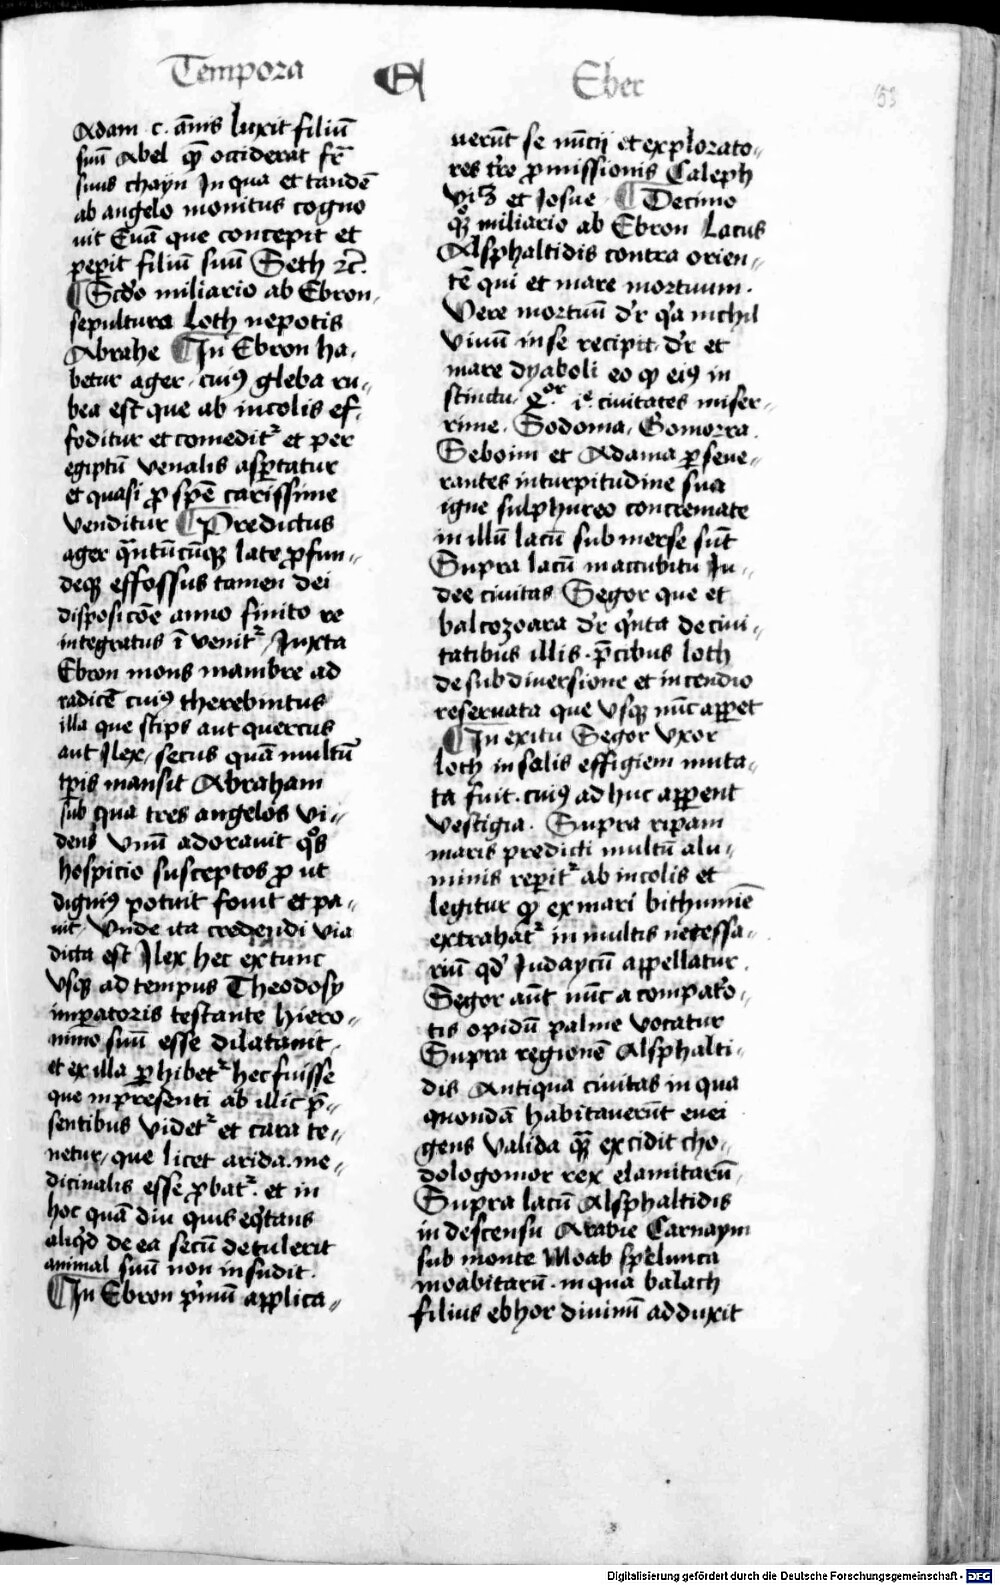 Tempora
E
Eber
53
Adam .c. annis luxit filiū
suū Abel qē occiderat fr̄
suus chayn In qua et tandē
ab angelo monitus cogno
uit Euā que concepit et
peperit filiū suū Seth ꝛc̄.
¶ Scdo miliario ab Ebron
sepultura Loth nepotis
Abrahe ¶ In Ebron ha-
betur ager cuiꝰ gleba ru-
bea est que ab incolis ef-
foditur et comeditᷣ et per
egiptū venalis asportatur
et quasi ꝓ spē carissime
venditur ¶ Predictus
ager quātūcūqꝫ late ꝓfun-
deqꝫ effossus tamen dei
disposicōe anno finito re
integratus ī venitᷣ Juxta
Ebron mons mambre ad
radicē cuiꝰ therebintus
illa que stips aut quercus
aut Jlex, secus quā multū
tp̄is mansit Abraham
sub qua tres angelos vi-
dens vnū adorauit qͦs
hospicio susceptos ꝓ ut
digniꝰ potuit fouit et pa-
uit Vnde ita credendi via
dicta est Jlex hec ex tunc
vsqꝫ ad tempus Theodosy
imꝑatoris testante hiero-
nimo suū esse dilatauit
et ex illa ꝑhibetᷣ hec fuisse
que in presenti ab illic p̄-
sentibus videtᷣ et cara te-
netur, que licet arida. me-
dicinalis esse ꝓbatᷣ. et in
hoc quā diu quis eqͥtans
aliqͥd de ea secū detulerit
animal suū non insudit.
¶ In Ebron pͥmū applica-
uerūt se nūcij et explorato-
res tr̄e ꝓmissionis Caleph
viꝫ et Josue ¶ Decimo
qͦꝫ miliario ab Ebron Lacus
Alsphaltidis contra orien-
tē qui et mare mortuum.
Vere mortuū dr̄ qͥa nichil
viuū in se recipit dr̄ et
mare dyaboli eo ꝙ eiꝰ in
stinctu, qͣtuor .i. ciuitates miser-
rime. Sodoma, Gomorra.
Seboim et Adama ꝑseue-
rantes in turpitudine sua
igne sulphureo concremate
in illū lacū submerse sūt
Supra lacū in accubitu Ju-
dee ciuitas Segor que et
balcozoara dr̄ qͥnta de ciui-
tatibus illis. p̄cibus loth
de subdiuersione et incendio
reseruata que vsqꝫ nūc apparet
¶ In exitu Segor vxor
loth in salis effigiem muta-
ta fuit. cuiꝰ ad huc apparent
vestigia. Supra ripam
maris predicti multū alu-
minis reperitᷣ ab incolis et
legitur ꝙ ex mari bithumiē
extrahatᷣ in multis necessa-
riū qd̄ Judaycū appellatur.
Segor aūt nūc a compato-
tis opidū palme vocatur
Supra regionē Alsphalti-
dis Antiqua ciuitas in qua
quondā habitauerūt euei
gens valida quā excidit cho-
dologomor rex elamitarū
Supra lacū Alsphaltidis
in descensu Arabie Carnaym
sub monte Moab spelunca
moabitarū. in qua balach
filius ebhor diuinū adduxit
Digitalisierung gefördert durch die Deutsche Forschungsgemeinschaft - DFG